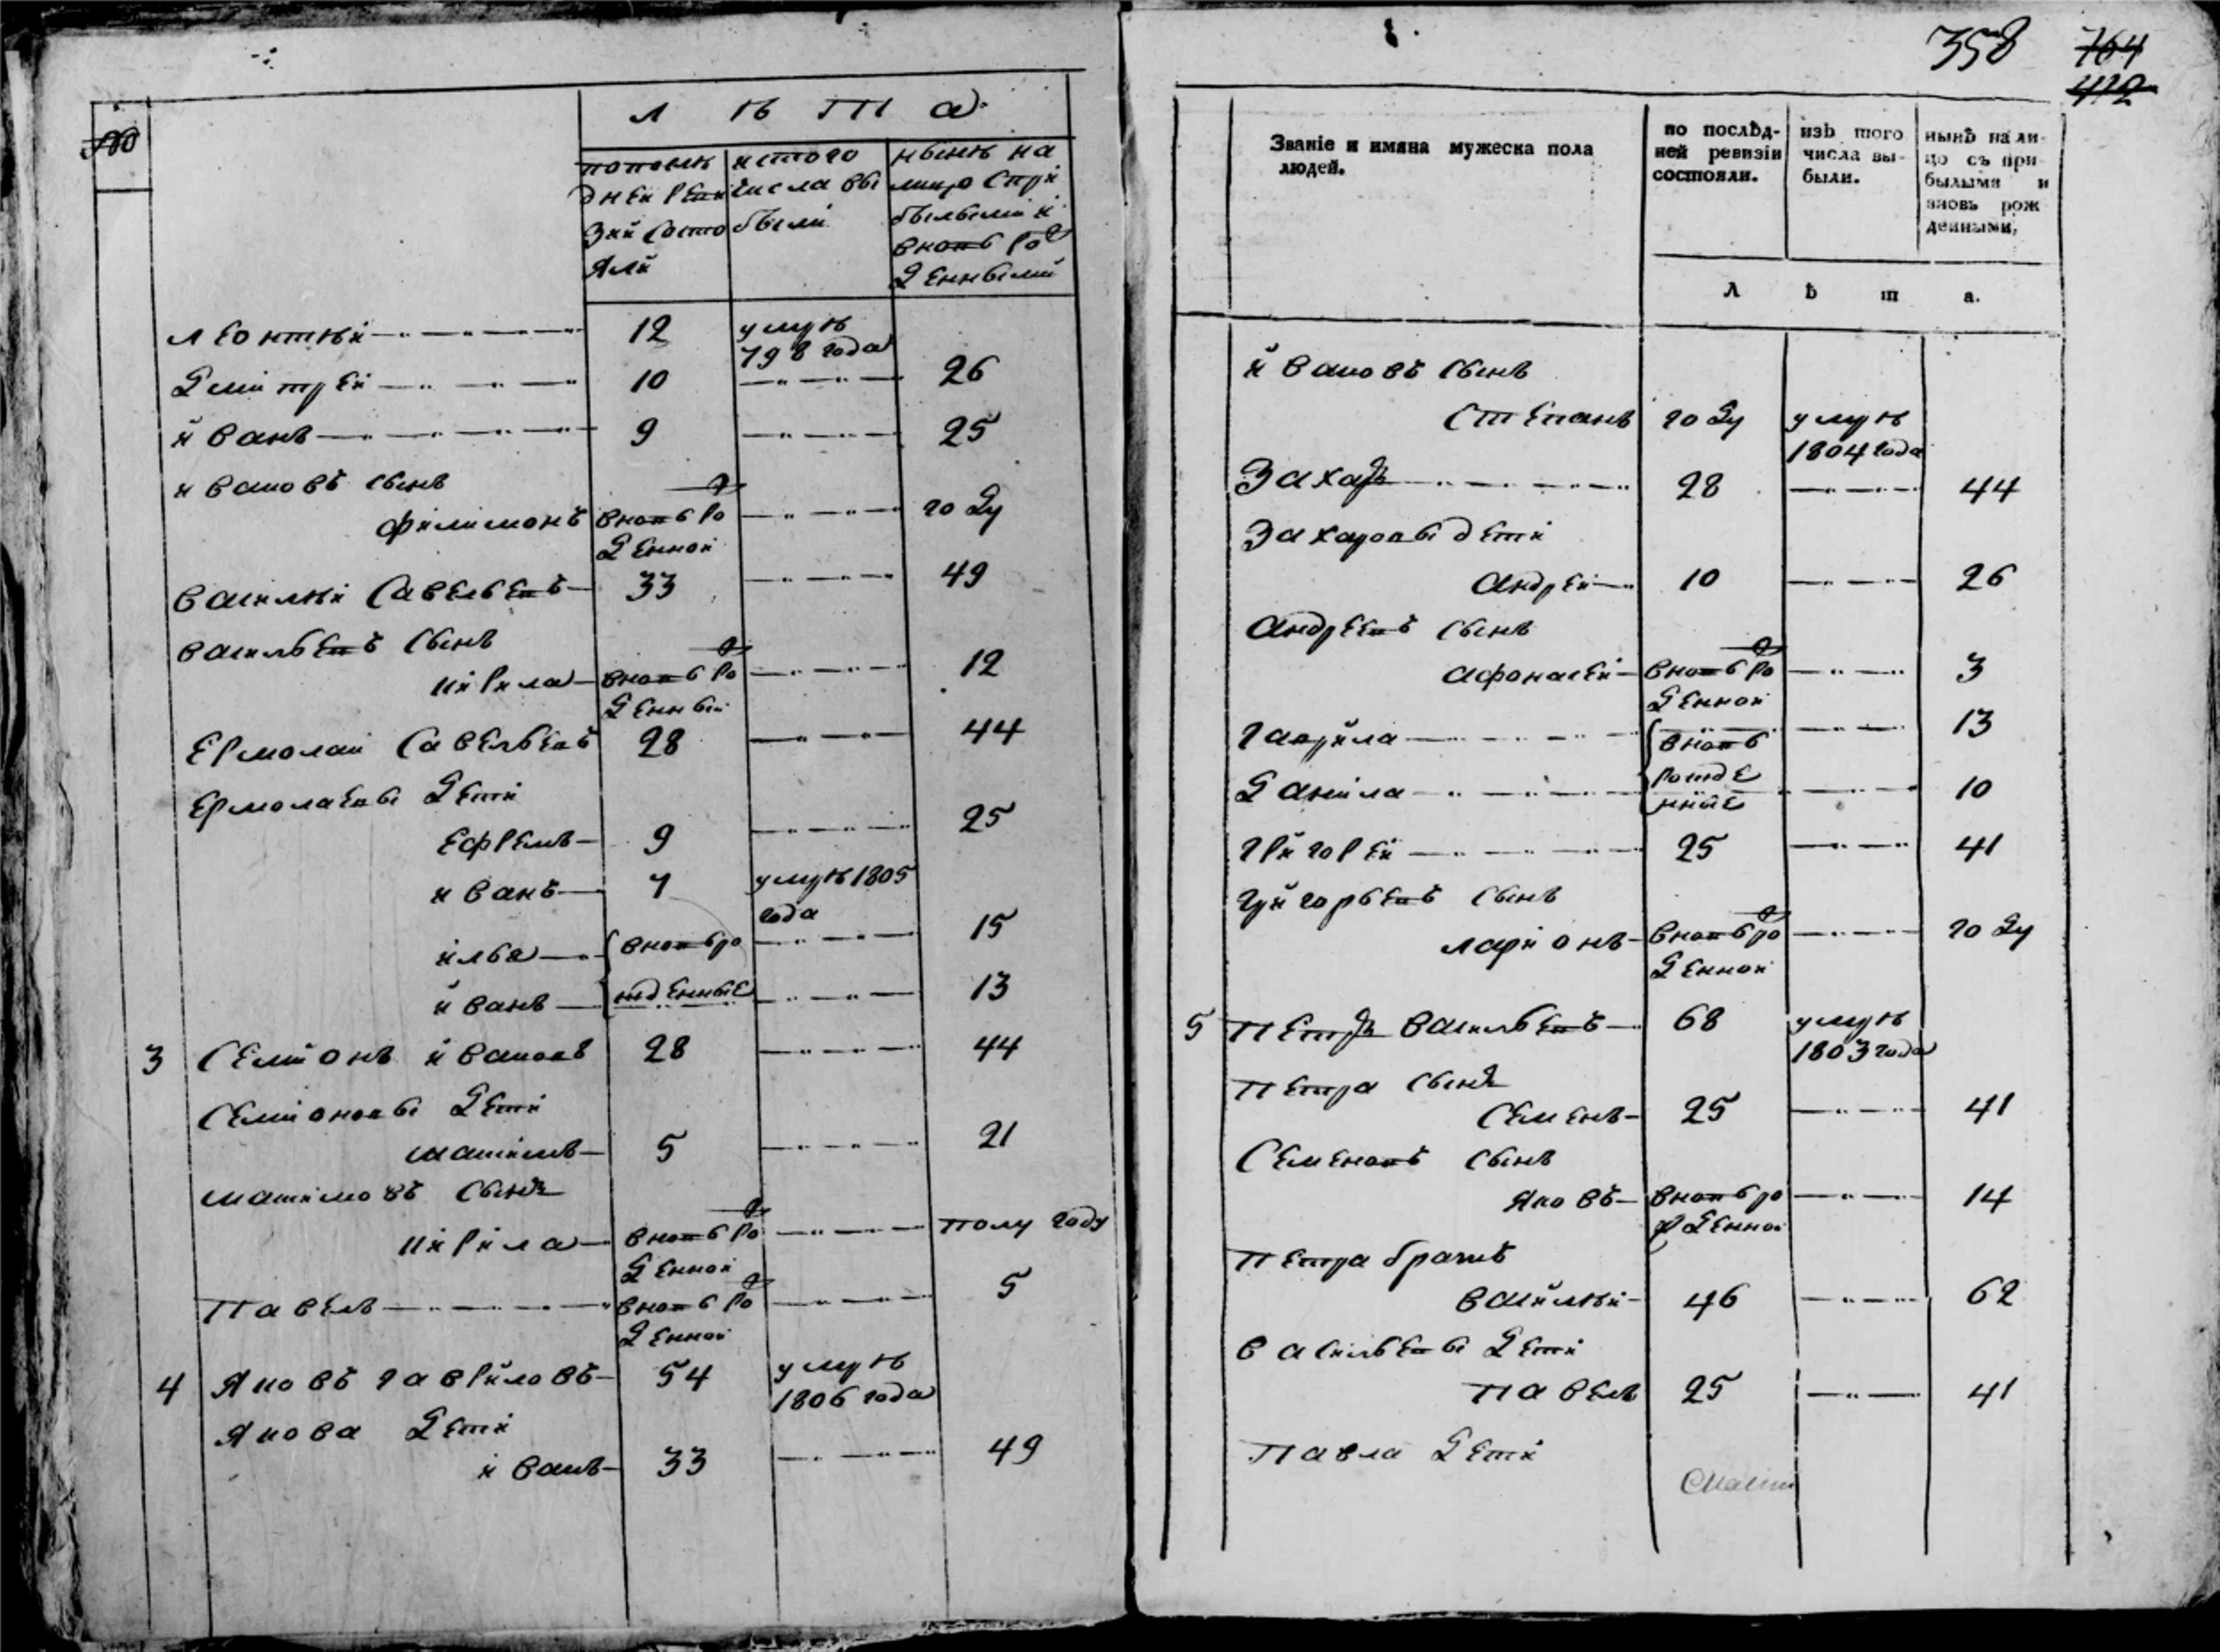 №
Л ѣ т а
попослѣ
дней реви
зіи состо
яли
истого
числа вы
были
нынѣ на
лицо спри
былыми и
вновь ро
жденными
леонтѣй 12 умре
798 года
дмитрей 10 26
иванъ 9 25
ивановъ сынъ
филимонъ вновь ро году
жденной
василѣй савельевъ 33 49
васильевъ сынъ
кирила вновь ро 12
жденный
ермолай савельевъ 28 44
ермолаевы дети
ефремъ 9 25
иванъ 7 умре 1805
года
илья вновь ро 15
иванъ жденные 13
3 семионъ ивановъ 28 44
семионовы дети
максимъ 5 21
максимовъ сынъ
кирила вновь ро полу году
жденной
павелъ вновь ро 5
жденной
4 яковъ гавриловъ 54 умре
1806 года
якова дети
иванъ 33 49
358 764
412
Званіе и имяна мужеска пола
людей.
по послѣд-
ней ревизіи
состояли.
изъ того
числа вы-
были.
нынѣ нали-
цо съ при-
былыми и
вновь рож
денными,
Л ѣ т а.
ивановъ сынъ
степанъ году умре
1804 года
Захаръ 28 44
Захаровы дети
андрей 10 26
андреевъ сынъ
афонасей вновь ро 3
жденной
гаврила вновь 13
рожде
данила нные 10
григорей 25 41
григорьевъ сынъ
ларионъ вновь ро году
жденной
5 петръ васильевъ 68 умре
1803 года
петра сынъ
семенъ 25 41
семеновъ сынъ
яковъ вновь ро 14
жденной
петра братъ
василѣй 46 62
васильевы дети
павелъ 25 41
павла дети